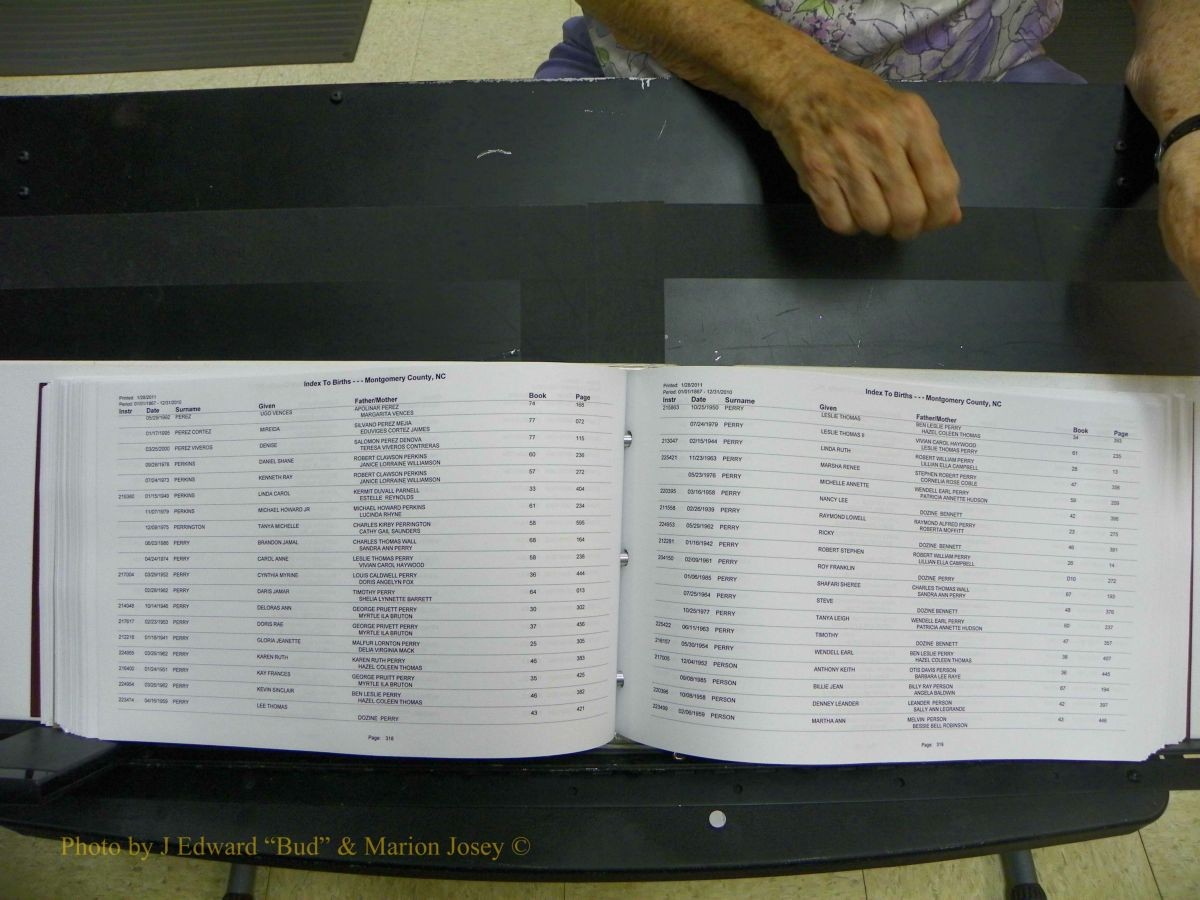 Printed: 1/28/2011
Period: 01/01/1867 - 12/31/2010
Index To Births - - - Montgomery County, NC
Instr Date Surname Given Father/Mother Book Page
05/29/1992 PEREZ UGO VENCES APOLINAR PEREZ 74 168
MARGARITA VENCES
01/17/1995 PEREZ CORTEZ MIREIDA SILVANO PEREZ MEJIA 77 072
EDUVIGES CORTEZ JAIMES
03/25/2000 PEREZ VIVEROS DENISE SALOMON PEREZ DENOVA 77 115
TERESA VIVEROS CONTRERAS
09/28/1978 PERKINS DANIEL SHANE ROBERT CLAWSON PERKINS 60 236
JANICE LORRAINE WILLIAMSON
07/24/1973 PERKINS KENNETH RAY ROBERT CLAWSON PERKINS 57 272
JANICE LORRAINE WILLIAMSON
216360 01/15/1949 PERKINS LINDA CAROL KERMIT DUVALL PARNELL 33 404
ESTELLE REYNOLDS
11/07/1979 PERKINS MICHAEL HOWARD JR MICHAEL HOWARD PERKINS 61 234
LUCINDA RHYNE
12/09/1975 PERRINGTON TANYA MICHELLE CHARLES KIRBY PERRINGTON 58 595
CATHY GAIL SAUNDERS
06/23/1986 PERRY BRANDON JAMAL CHARLES THOMAS WALL 68 164
SANDRA ANN PERRY
04/24/1974 PERRY CAROL ANNE LESLIE THOMAS PERRY 58 238
VIVIAN CAROL HAYWOOD
217004 03/29/1952 PERRY CYNTHIA MYRINE LOUIS CALDWELL PERRY 36 444
DORIS ANGELYN FOX
02/28/1982 PERRY DARIS JAMAR TIMOTHY PERRY 64 013
SHELIA LYNNETTE BARRETT
214049 10/14/1946 PERRY DELORAS ANN GEORGE PRUETT PERRY 30 302
MYRTLE ILA BRUTON
217617 02/23/1953 PERRY DORIS RAE GEORGE PRUETT PERRY 37 456
MYRTLE ILA BRUTON
212218 01/18/1941 PERRY GLORIA JEANETTE MALFUR LORNTON PERRY 25 305
DELIA VIRGINIA MACK
224955 03/25/1962 PERRY KAREN RUTH KAREN RUTH PERRY 46 383
HAZEL COLEEN THOMAS
216402 01/24/1951 PERRY KAY FRANCES GEORGE PRUITT PERRY 35 425
MYRTLE ILA BRUTON
224954 03/25/1962 PERRY KEVIN SINCLAIR BEN LESLIE PERRY 46 382
HAZEL COLEEN THOMAS
223474 04/16/1959 PERRY LEE THOMAS 43 421
DOZINE PERRY
Page: 318
Printed: 1/28/2011
Period: 01/01/1867 - 12/31/2010
Index To Births - - - Montgomery County, NC
Instr Date Surname Given Father/Mother Book Page
215863 10/25/1950 PERRY LESLIE THOMAS BEN LESLIE PERRY 34 393
HAZEL COLEEN THOMAS
07/24/1979 PERRY LESLIE THOMAS II VIVIAN CAROL HAYWOOD 61 235
LESLIE THOMAS PERRY
213047 02/15/1944 PERRY LINDA RUTH ROBERT WILLIAM PERRY 28 13
LILLIAN ELLA CAMPBELL
225421 11/23/1963 PERRY MARSHA RENEE STEPHEN ROBERT PERRY 47
CORNELIA ROSE COBLE
05/23/1976 PERRY MICHELLE ANNETTE WENDELL EARL PERRY 59 209
PATRICIA ANNETTE HUDSON
220395 03/16/1958 PERRY NANCY LEE 42 395
DOZINE BENNETT
211558 02/26/1939 PERRY RAYMOND LOWELL RAYMOND ALFRED PERRY 23 275
ROBERTA MOFFITT
224953 05/29/1962 PERRY RICKY 46 381
DOZINE BENNETT
212281 01/16/1942 PERRY ROBERT STEPHEN ROBERT WILLIAM PERRY 26 14
LILLIAN ELLA CAMPBELL
204150 02/09/1961 PERRY ROY FRANKLIN D10 272
DOZINE PERRY
01/06/1985 PERRY SHAFARI SHEREE CHARLES THOMAS WALL 67 193
SANDRA ANN PERRY
07/25/1964 PERRY STEVE 48 376
DOZINE BENNETT
10/25/1977 PERRY TANYA LEIGH WENDELL EARL PERRY 60 237
PATRICIA ANNETTE HUDSON
225422 06/11/1963 PERRY TIMOTHY 47 357
DOZINE BENNETT
218157 05/30/1954 PERRY WENDELL EARL BEN LESLIE PERRY 38 407
HAZEL COLEEN THOMAS
217005 12/04/1952 PERSON ANTHONY KEITH OTIS DAVIS PERSON 36 445
BARBARA LEE RAYE
09/08/1985 PERSON BILLIE JEAN BILLY RAY PERSON 67 194
ANGELA BALDWIN
220396 10/08/1958 PERSON DENNEY LEANDER LEANDER PERSON 42 397
SALLY ANN LEGRANDE
223499 02/06/1959 PERSON MARTHA ANN MELVIN PERSON 43 446
BESSIE BELL ROBINSON
Page: 319
Photo by J Edward “Bud” & Marion Josey ©